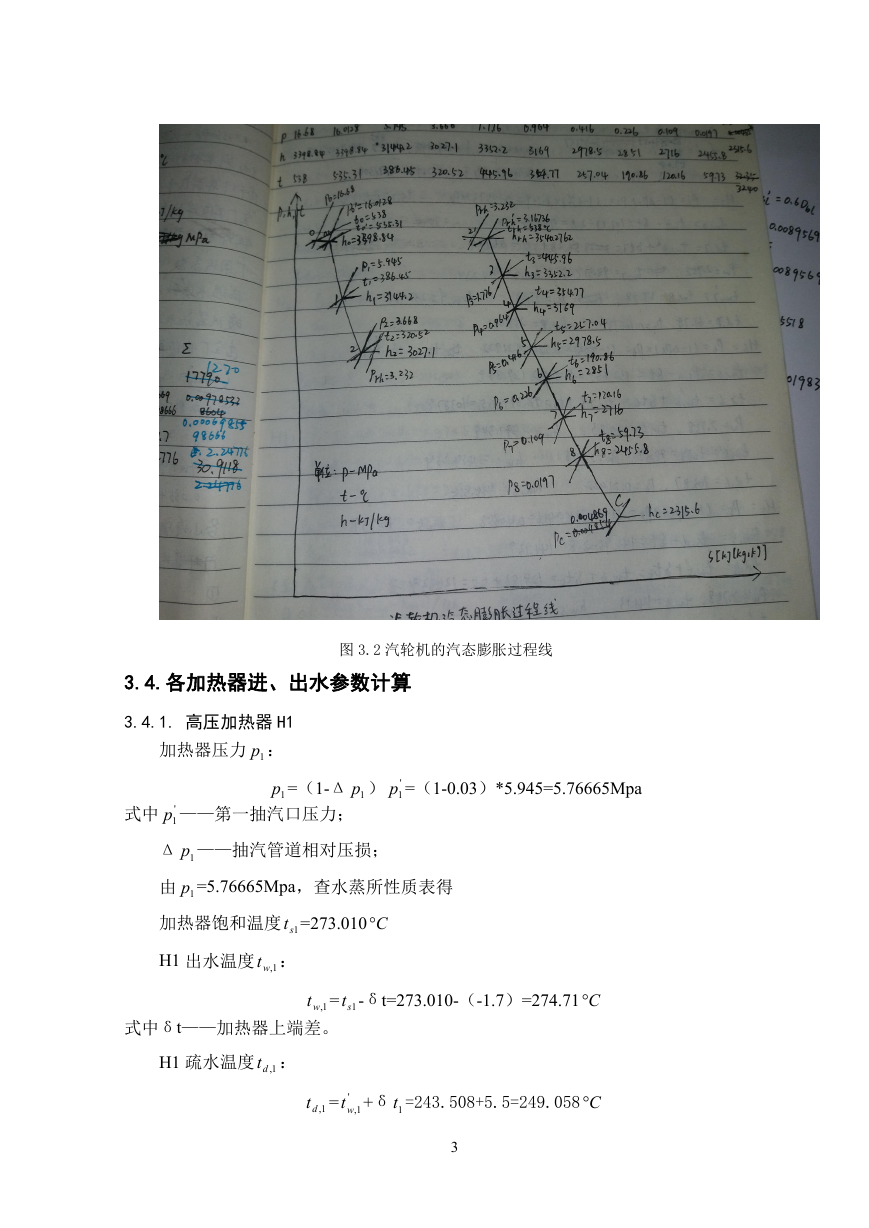 p 16.68 16.0128 3.668 1.776 0.964 0.416 0.226 0.109 0.0197
h 3398.84 3398.84 3144.2 3027.1 3352.2 3169 2978.5 2851 2716 2455.8 2315.6
t 538 535.31 386.45 320.52 445.96 354.77 257.04 190.86 120.16 59.73
p.h.t
P0=16.68
P0'=16.0128
t0=538
t0'=535.31
h0=3398.84
P1=5.945
t1=386.45
h1=3144.2
P2=3.668
t2=320.52
h2=3027.1
Prh=3.232
Prh=3.232
Prh'=3.16736
trh=538℃
hrh=3540.2762
t3=445.96
h3=3352.2
P3=1.776
t4=354.77
h4=3169
P4=0.964
t5=257.04
h5=2978.5
P5=0.416
t6=190.86
h6=2851
P6=0.226
t7=120.16
h7=2716
P7=0.109
t8=59.73
h8=2455.8
P8=0.0197
0.004869
Pc=
hc=2315.6
单位:p-MPa
t-℃
h-kJ/kg
汽轮机汽态膨胀过程线
Σ
1270
98666
2.24776
=0.6Db1
0.0089569
5578
01983
图 3.2 汽轮机的汽态膨胀过程线
3.4.各加热器进、出水参数计算
3.4.1. 高压加热器 H1
加热器压力 p1：
p1=（1-Δ p1） p1'=（1-0.03）*5.945=5.76665Mpa
式中 p1'——第一抽汽口压力；
Δ p1——抽汽管道相对压损；
由 p1=5.76665Mpa，查水蒸所性质表得
加热器饱和温度 ts1=273.010°C
H1 出水温度 tw,1：
tw,1=ts1-δt=273.010-（-1.7）=274.71°C
式中δt——加热器上端差。
H1 疏水温度 td,1：
td,1=t'w,1+δ t1=243.508+5.5=249.058°C
3